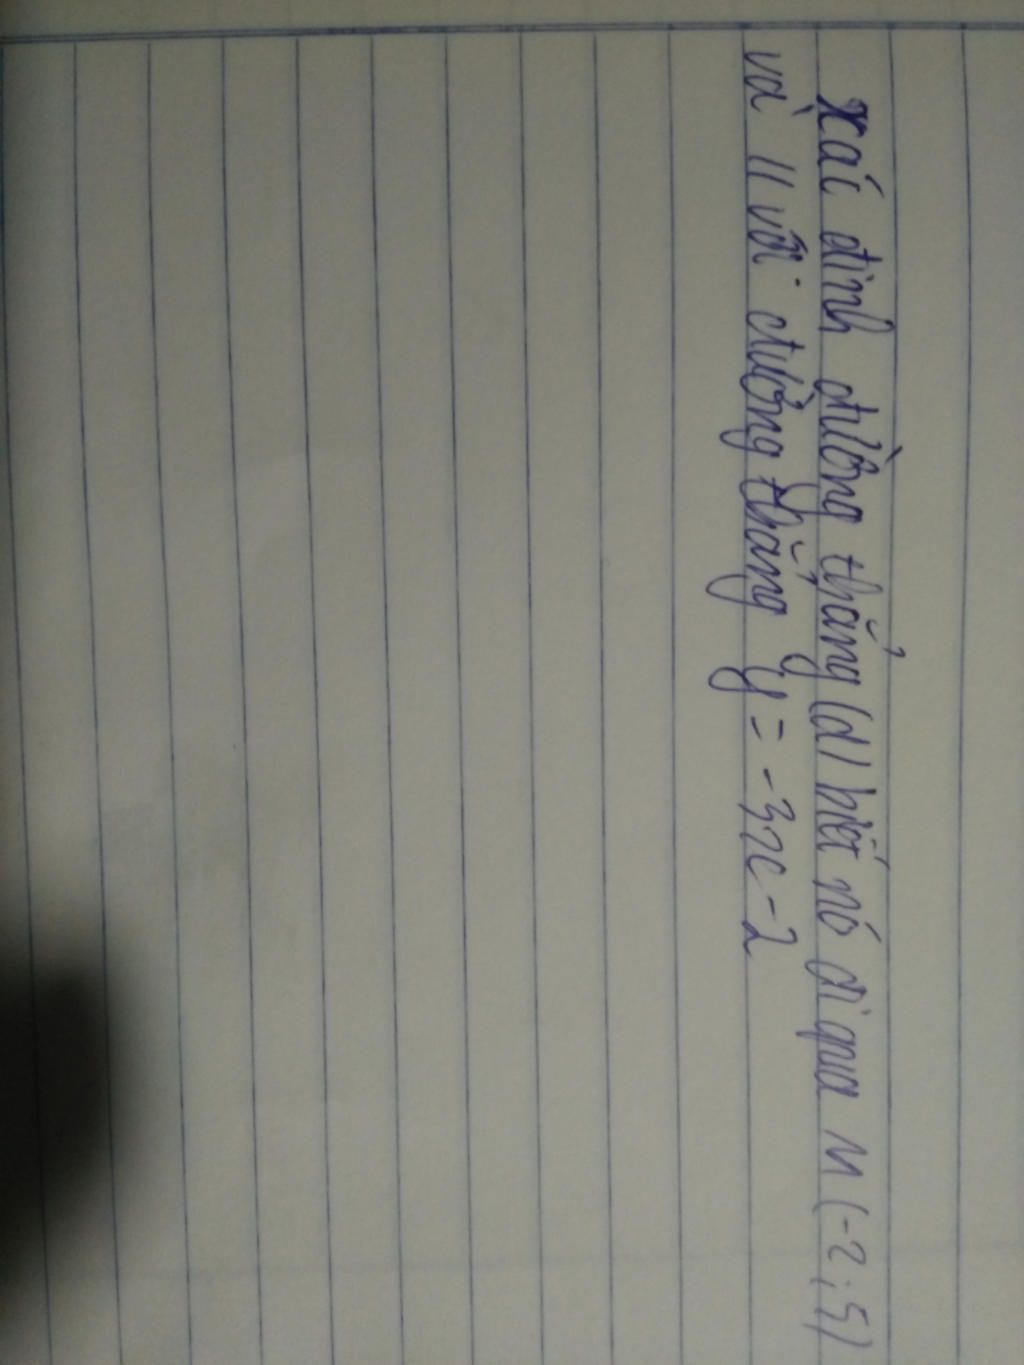 xác định đường thẳng (d) biết nó đi qua M (-2; 5)
và // với đường thẳng y = -3x - 2